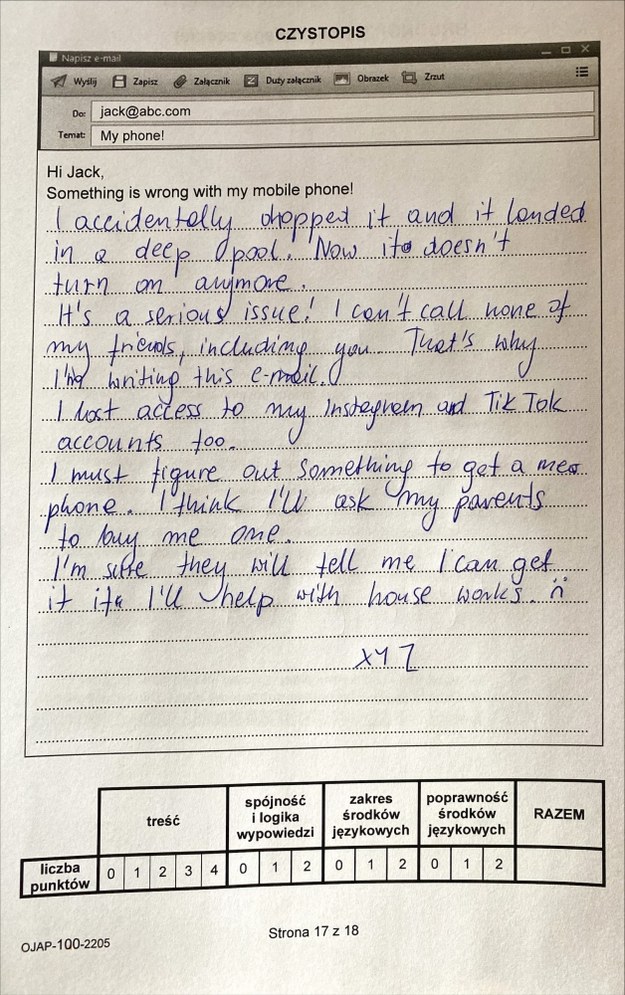 CZYSTOPIS
Napisz e-mail
Wyślij Zapisz Załącznik Duży załącznik Obrazek Zrzut
Do: jack@abc.com
Temat: My phone!
Hi Jack,
Something is wrong with my mobile phone!
I accidentally dropped it and it landed
in a deep pool. Now it doesn't
turn on anymore.
It's a serious issue! I can't call none of
my friends, including you. That's why
I'm writing this e-mail.
I lost access to my Instagram and TikTok
accounts too.
I must figure out something to get a new
phone. I think I'll ask my parents
to buy me one.
I'm sure they will tell me I can get
it if I'll help with house works. :(
XYZ
treść
spójność i logika wypowiedzi
zakres środków językowych
poprawność środków językowych
RAZEM
liczba punktów 0 1 2 3 4 0 1 2 0 1 2 0 1 2
Strona 17 z 18
OJAP-100-2205